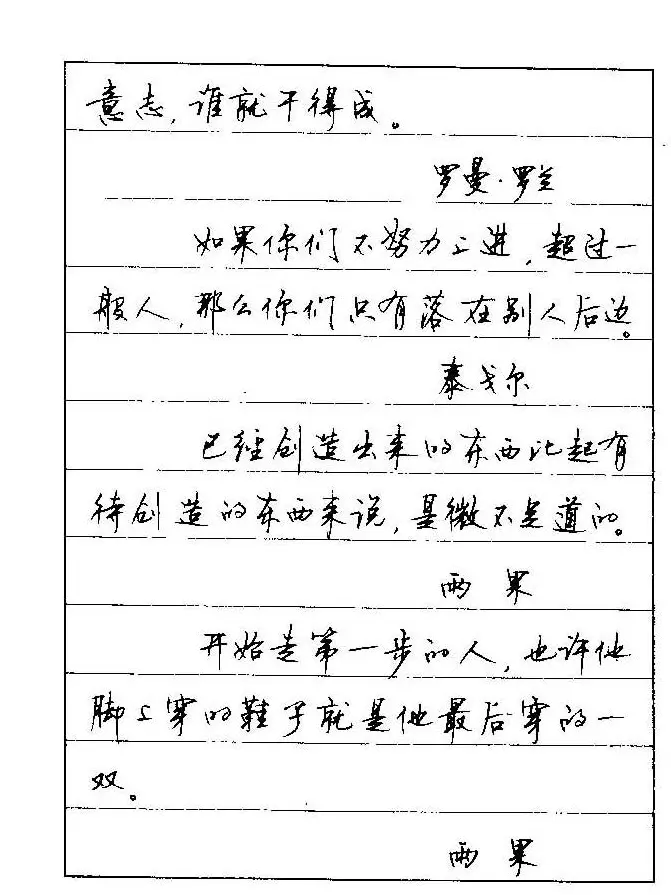 意志，谁就干得成。
罗曼·罗兰
如果你们不努力上进，超过一
般人，那么你们只有落在别人后边。
泰戈尔
已经创造出来的东西比起有
待创造的东西来说，是微不足道的。
雨果
开始走第一步的人，也许他
脚上穿的鞋子就是他最后穿的一
双。
雨果